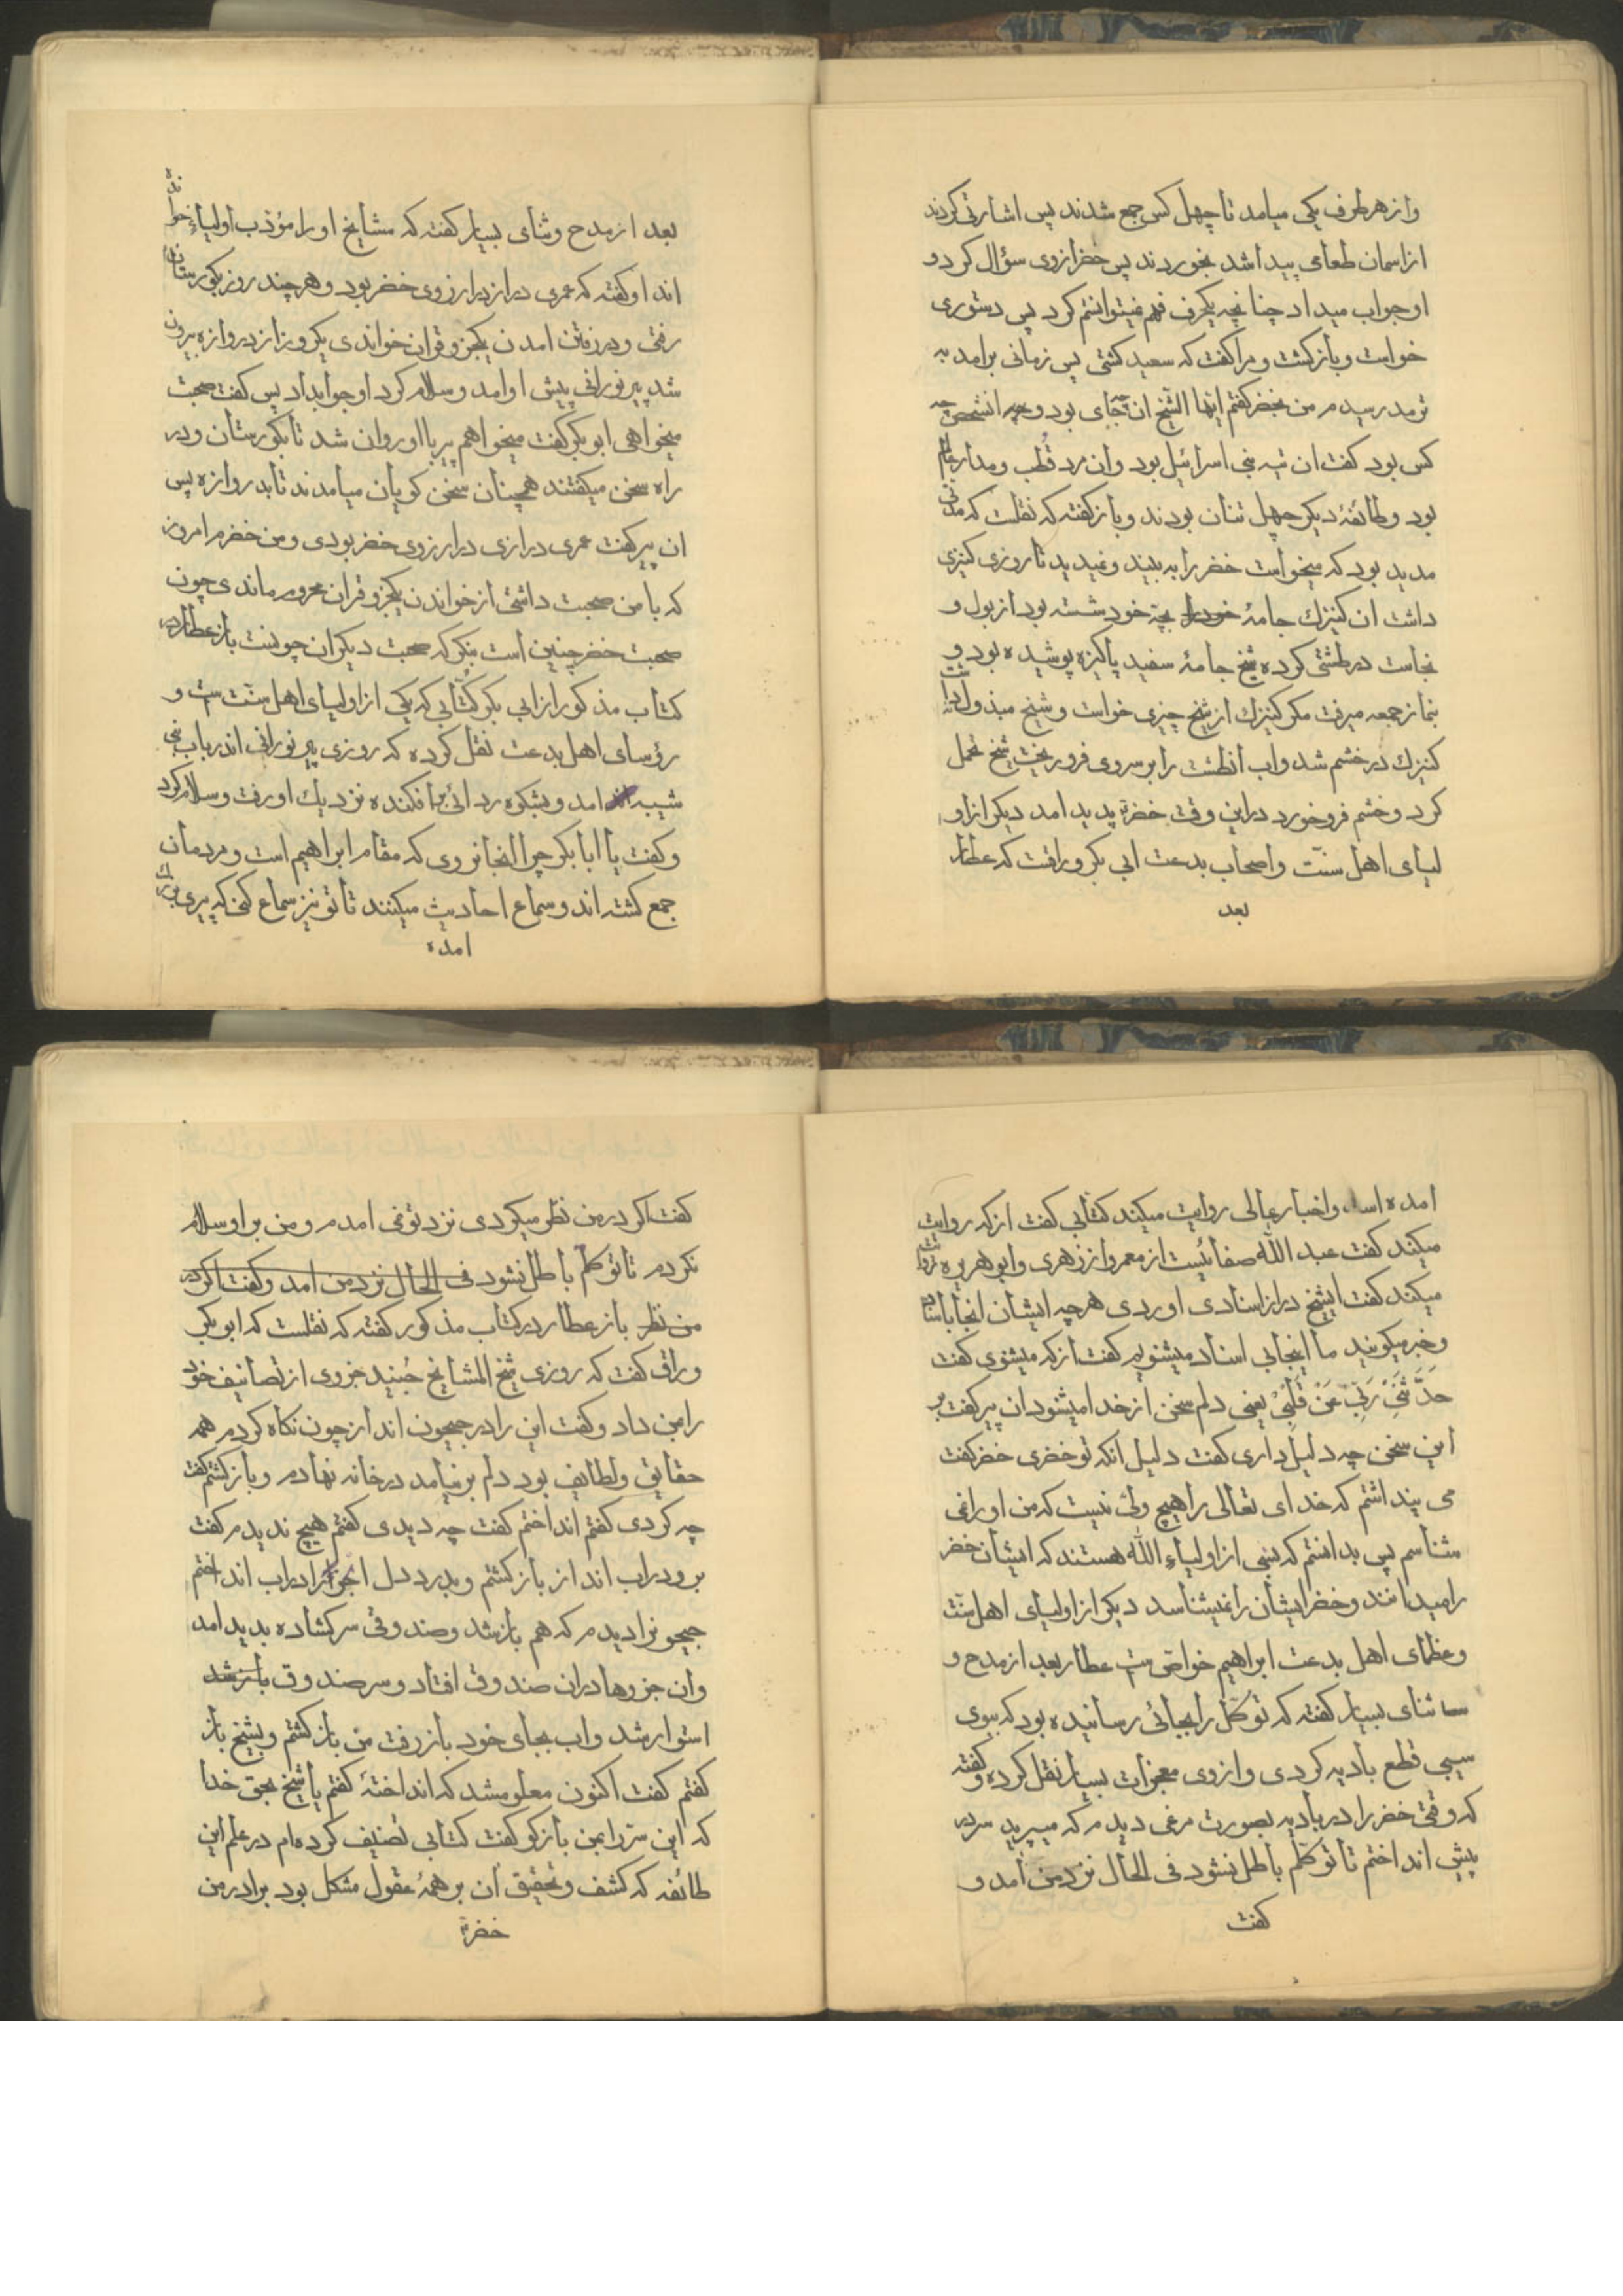 وازهرطرف یکی میامد تا چهل کس جمع شدند پس اشارتی کردند
از اسمان طعامی پیدا شد بخوردند پس خضر ازوی سؤال کرد و
او جواب میداد چنانچه یکحرف فهم نمیتوانستم کرد پس دستوری
خواست و بازکشت و مرا کفت که سعید کشتی پس زمانی برامد به
ترمد رسیدم من بخضر کفتم ایها الشیخ ان چه جای بود و چه انشخص چه
کس بود کفت ان تیه بنی اسرائیل بود وان مرد قطب و مدار عالم
بود و طائفهٔ دیکر چهل تنان بودند و باز کفته که نقلست که مدتی
مدید بود که میخواست خضر را به بیند و نمیدید تا روزی کنیزی
داشت ان کنیزك جامهٔ بچه خود شسته بود از بول و
نجاست در طشتی کرده شیخ جامهٔ سفید پاکیزه پوشیده بود و
بنماز جمعه میرفت مکر کنیزك از شیخ چیزی خواست و شیخ مبذول نداشت
کنیزك در خشم شد واب انطشت را بر سروی فرو ریخت شیخ تحمل
کرد و خشم فرو خورد در این وقت خضر پدید امد دیکر از او
لیای اهل سنّت واصحاب بدعت ابی بکر وراقست که عطار
بعد
بعد از مدح و ثنای بسیار کفته که مشایخ اورا مؤدب اولیاء خوانده
اند او کفته که عمری دراز در ارزوی خضر بود و هر چند روز بکورستان
رفتی و در رفتن امدن یکجزو قران خواندی یکروز از دروازه بیرون
شد پیر نورانی پیش او امد و سلام کرد او جوابداد پس کفت صحبت
میخواهی ابوبکر کفت میخواهم پیر بااو روان شد تا بکورستان و در
راه سخن میکفتند همچنان سخن کویان میامدند تا بدروازه پس
ان پیر کفت عمری درازی در ارزوی خضر بودی و من خضرم امروز
که با من صحبت داشتی از خواندن یکجزو قران محروم ماندی چون
صحبت خضر چنین است بنکر که صحبت دیکران چونست باز عطار در
کتاب مذکور از ابی بکر کتّانی که یکی از اولیای اهل سنّت ست و
رؤسای اهل بدعت نقل کرده که روزی پیر نورانی اندر باب بنی
شیبه امد و بشکوه ردائی برافکنده نزدیك او رفت و سلام کرد
و کفت یا ابابکر چرا النجا نروی که مقام ابراهیم است و مردمان
جمع کشته اند و سماع احادیث میکنند تا تو نیز سماع کنی که پیری بزرك
امده
امده است واخبار عالی روایت میکند کتانی کفت از که روایت
میکند کفت عبد الله صفائیست از معمر و از زهری و ابوهریره روایت
میکند کفت ایشیخ دراز اسنادی اوردی هرچه ایشان انجا باسناد
وخبر میکویند ما اینجابی اسناد میشنویم کفت از که میشنوی کفت
حَدَّثَنِی رَبِّی عَنْ قَلْبِی یعنی دلم سخن از خدا میشنود ان پیر کفت بر
این سخن چه دلیل داری کفت دلیل انکه تو خضری خضر کفت
می پنداشتم که خدای تعالی را هیچ ولی نیست که من او را نمی
شناسم پس بدانستم که بسی از اولیاء الله هستند که ایشان خضر
را میدانند و خضر ایشان را نمیشناسد دیکر از اولیای اهل سنّت
و عظمای اهل بدعت ابراهیم خواص ست عطار بعد از مدح و
ثنای بسیار کفته که توکل را بجائی رسانیده بود که ببوی
سیبی قطع بادیه کردی و از وی معجزات بسیار نقل کرده و کفته
که وقتی خضر را در بادیه بصورت مرغی دیدم که میپرید سر در
پیش انداختم تا توکلم باطل نشود فی الحال نزد من امد و
کفت
کفت اکر در من نظر میکردی نزد تو نمی امدم و من بر او سلام
نکردم تا توکلم باطل نشود فی الحال نزد من امد و کفت اکر در
من نظر باز عطار در کتاب مذکور کفته که نقلست که ابو بکر
وراق کفت که روزی شیخ المشایخ جنید جزوی از تصانیف خود
را بمن داد و کفت این را در جیحون انداز چون نکاه کردم همه
حقایق و لطایف بود دلم بر نیامد در خانه نهادم و باز کشتم کفت
چه کردی کفتم انداختم کفت چه دیدی کفتم هیچ ندیدم کفت
برو در اب انداز باز کشتم و بدرد دل انجزو را دراب انداختم
جیحونرا دیدم که هم باز شد و صندوقی سرکشاده بدید امد
وان جزوها دران صندوق افتاد و سر صندوق باز شد
استوار شد و اب بجای خود باز رفت من باز کشتم و بشیخ باز
کفتم کفت اکنون معلوم شد که انداختهٔ کفتم یا شیخ بحق خدا
که این سرّ را بمن بازکو کفت کتابی تصنیف کرده ام در علم این
طائفه که کشف و تحقیق ان بر همهٔ عقول مشکل بود برادر من
خضر